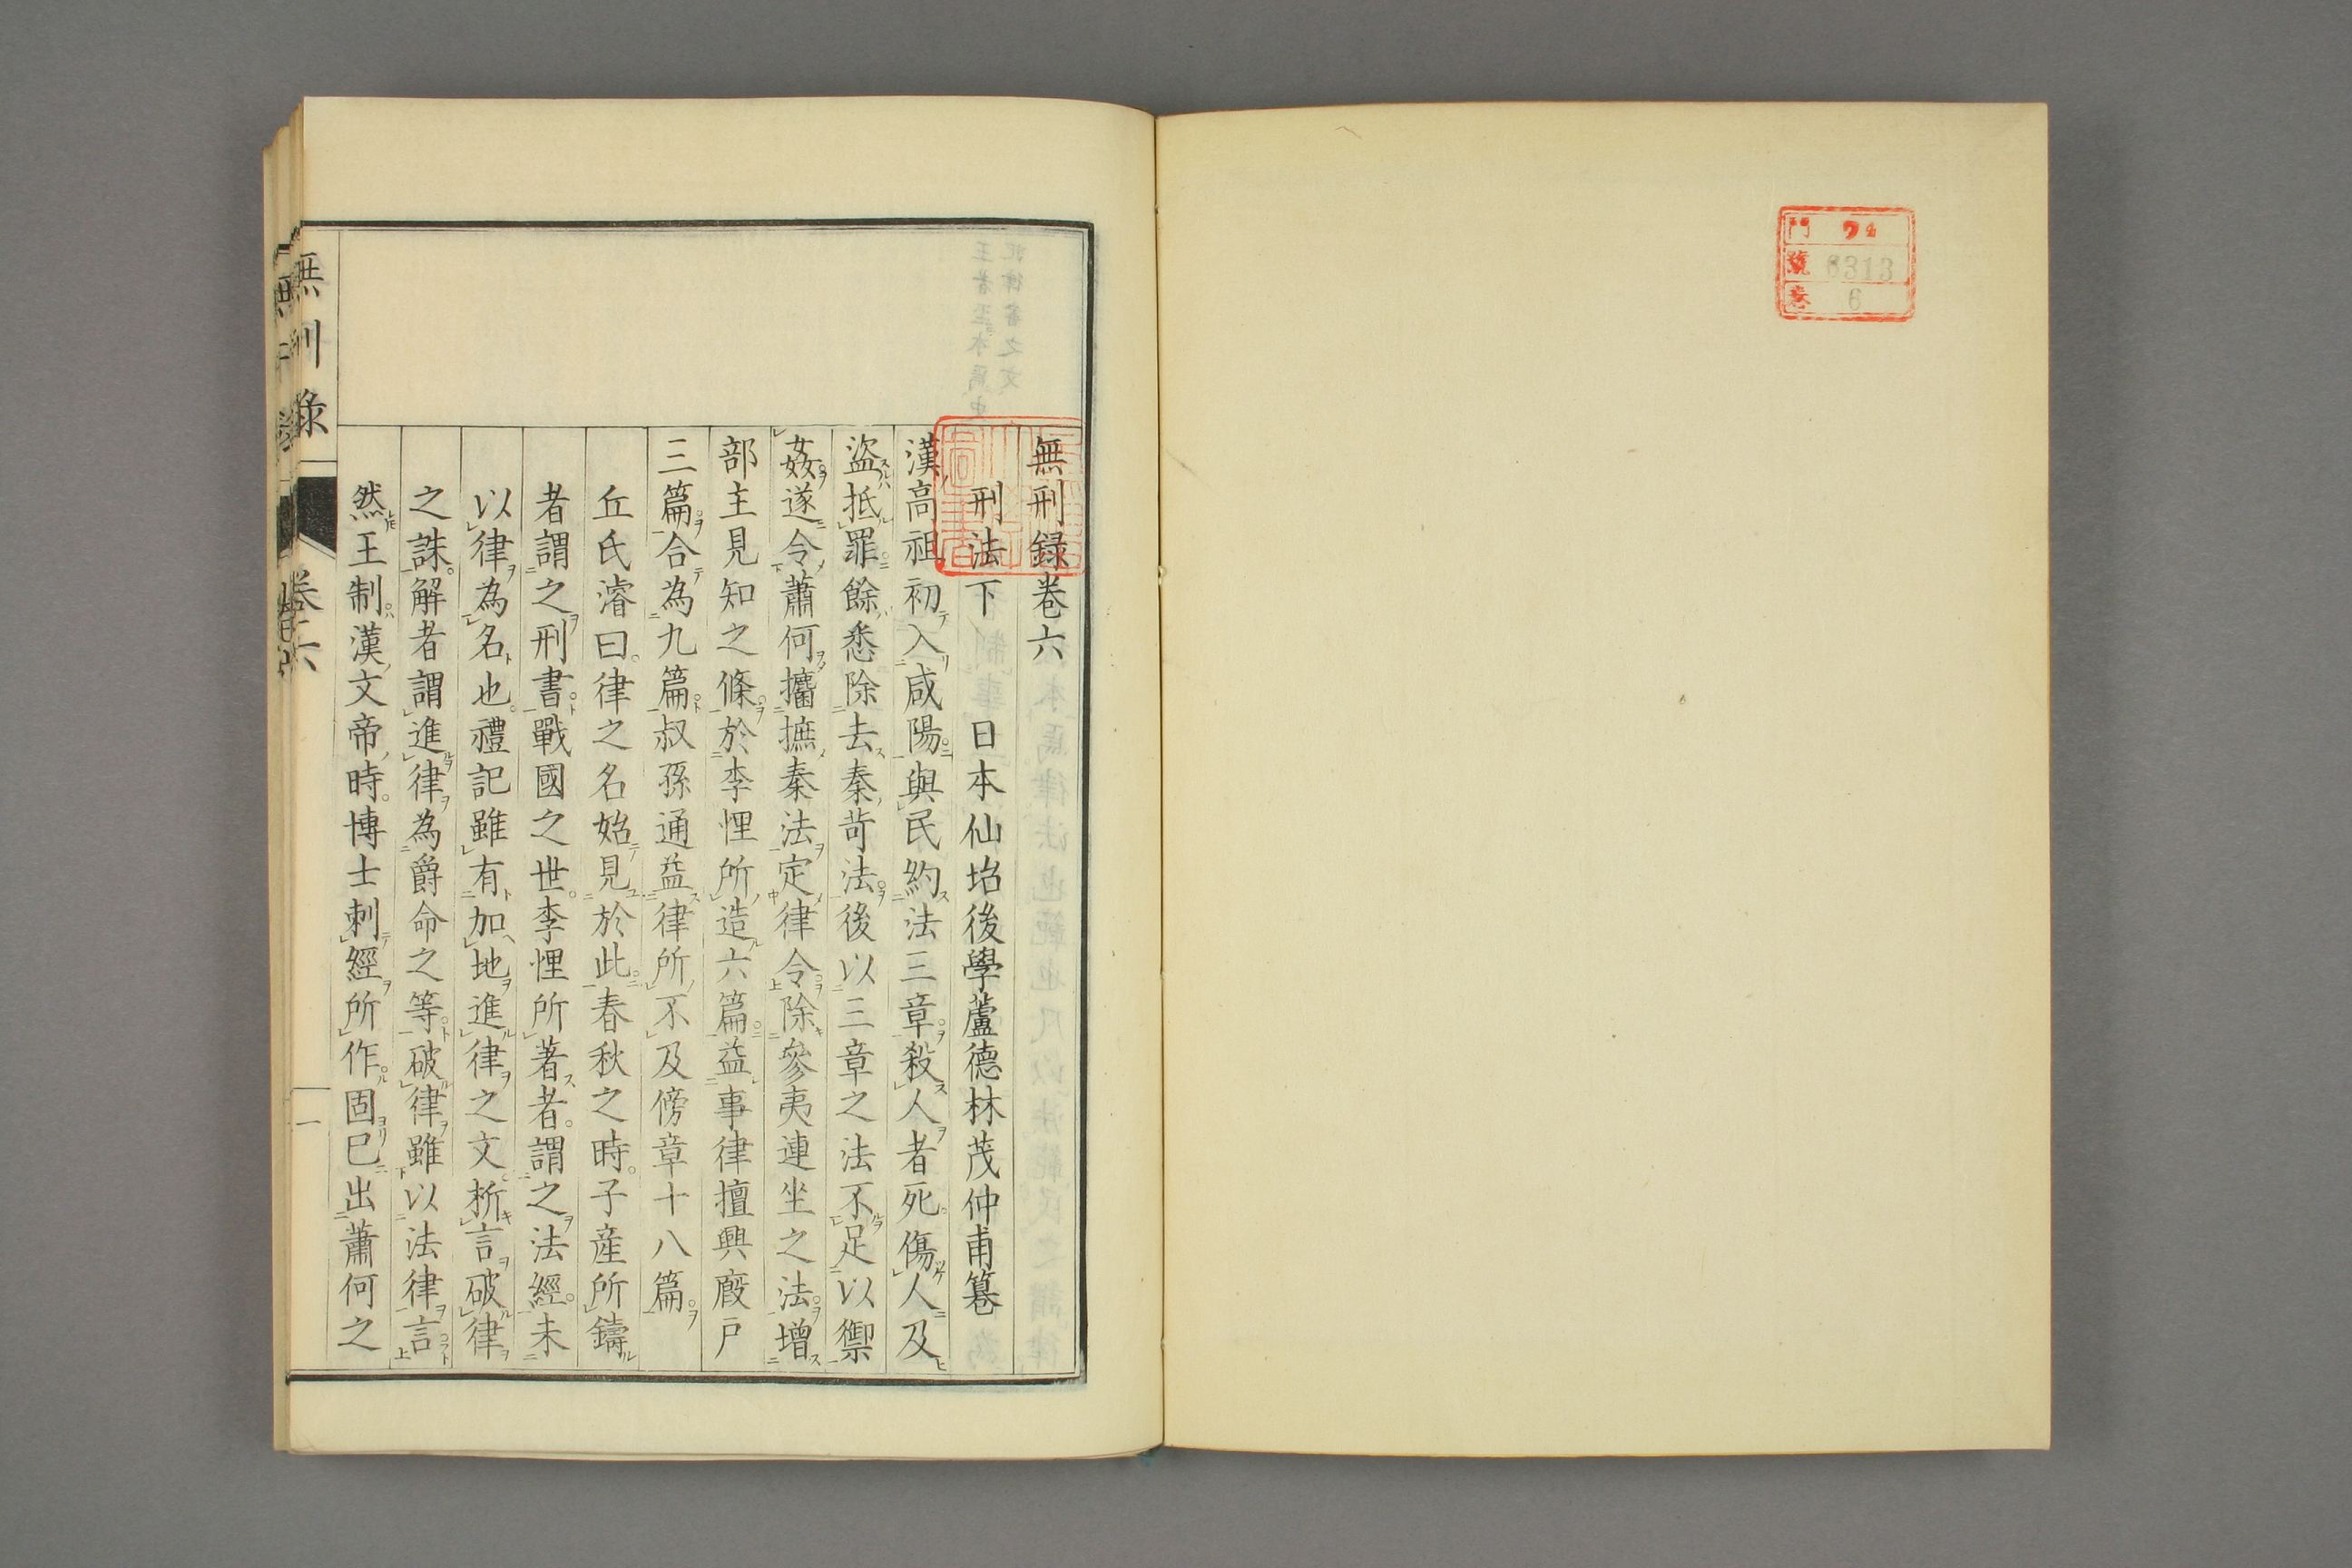 門
號 6313
卷 6
無刑録卷六
刑法下 日本仙坮後學蘆德林茂仲甫篹
漢高祖初入咸陽與民約法三章殺人者死傷人及
盜抵罪餘悉除去秦苛法後以三章之法不足以禦
姦遂令蕭何攟摭秦法定律令除參夷連坐之法增
部主見知之條於李悝所造六篇益事律擅興廄戸
三篇合為九篇叔孫通益律所不及傍章十八篇
丘氏濬曰律之名始見於此春秋之時子産所鑄
者謂之刑書戰國之世李悝所著者謂之法經未
以律為名也禮記雖有加地進律之文析言破律
之誅解者謂進律為爵命之等破律雖以法律言
然王制漢文帝時博士刺經所作固已出蕭何之
無刑錄 卷六 一